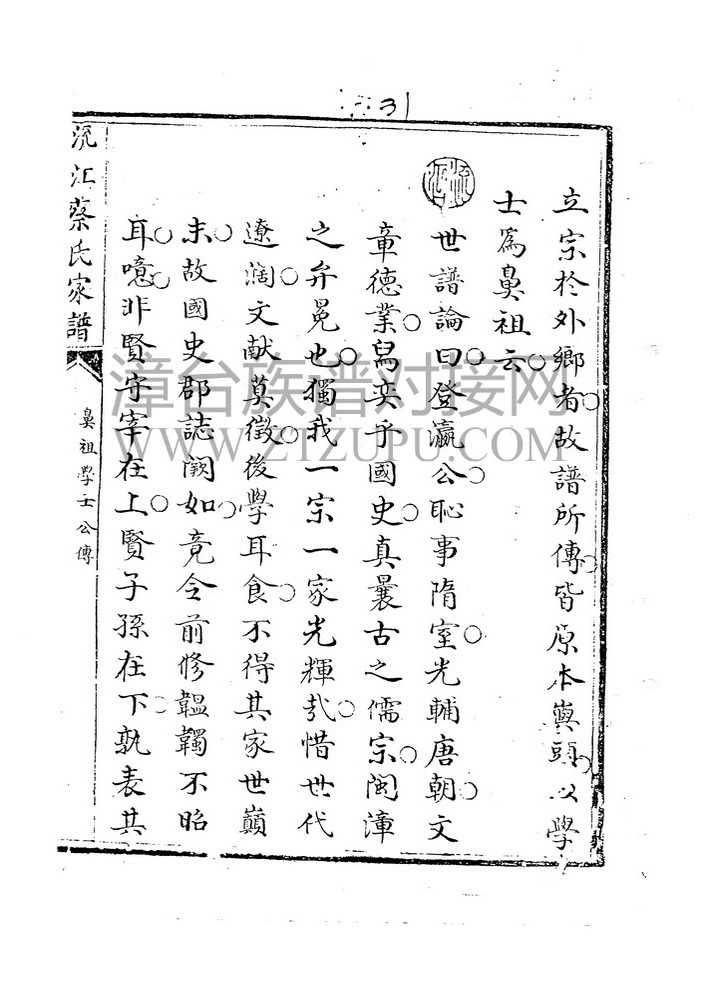 31
立宗於外鄉者故譜所傳皆原本輿頭以學
士爲鼻祖云
世譜論曰登瀛公恥事隋室光輔唐朝文
章德業舄奕乎國史真曩古之儒宗閩漳
之弁冕也獨我一宗一家光輝哉惜世代
遼濶文献莫徵後學耳食不得其家世巔
末故國史郡誌闕如竟令前修韞韣不昭
耳噫非賢守宰在上賢子孫在下孰表其
江蔡氏家譜
鼻祖學士公傳
漳台族谱对接网
WWW.ZTZUPU.COM